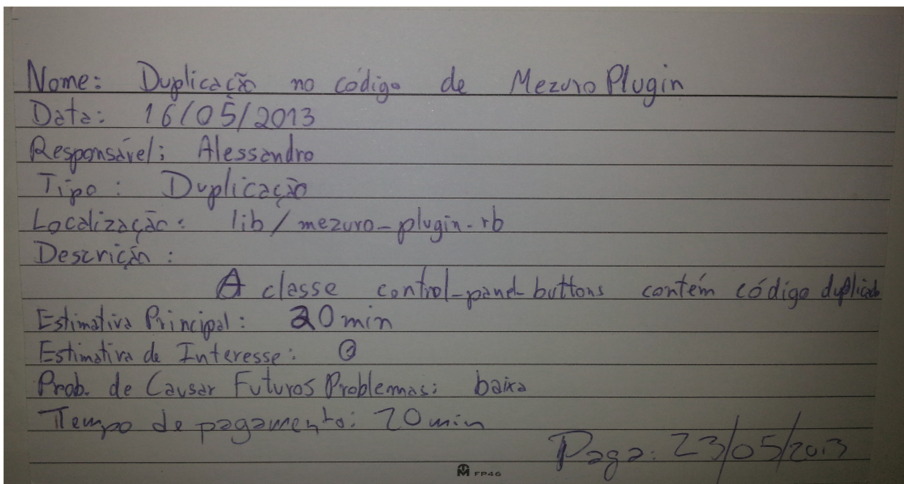 Nome: Duplicação no código de Mezuro Plugin
Data: 16/05/2013
Responsável: Alessandro
Tipo: Duplicação
Localização: lib/mezuro-plugin.rb
Descrição:
A classe control-panel-buttons contém código duplicado
Estimativa Principal: 20 min
Estimativa de Interesse: 0
Prob. de Causar Futuros Problemas: baixa
Tempo de pagamento: 20 min
Paga: 23/05/2013